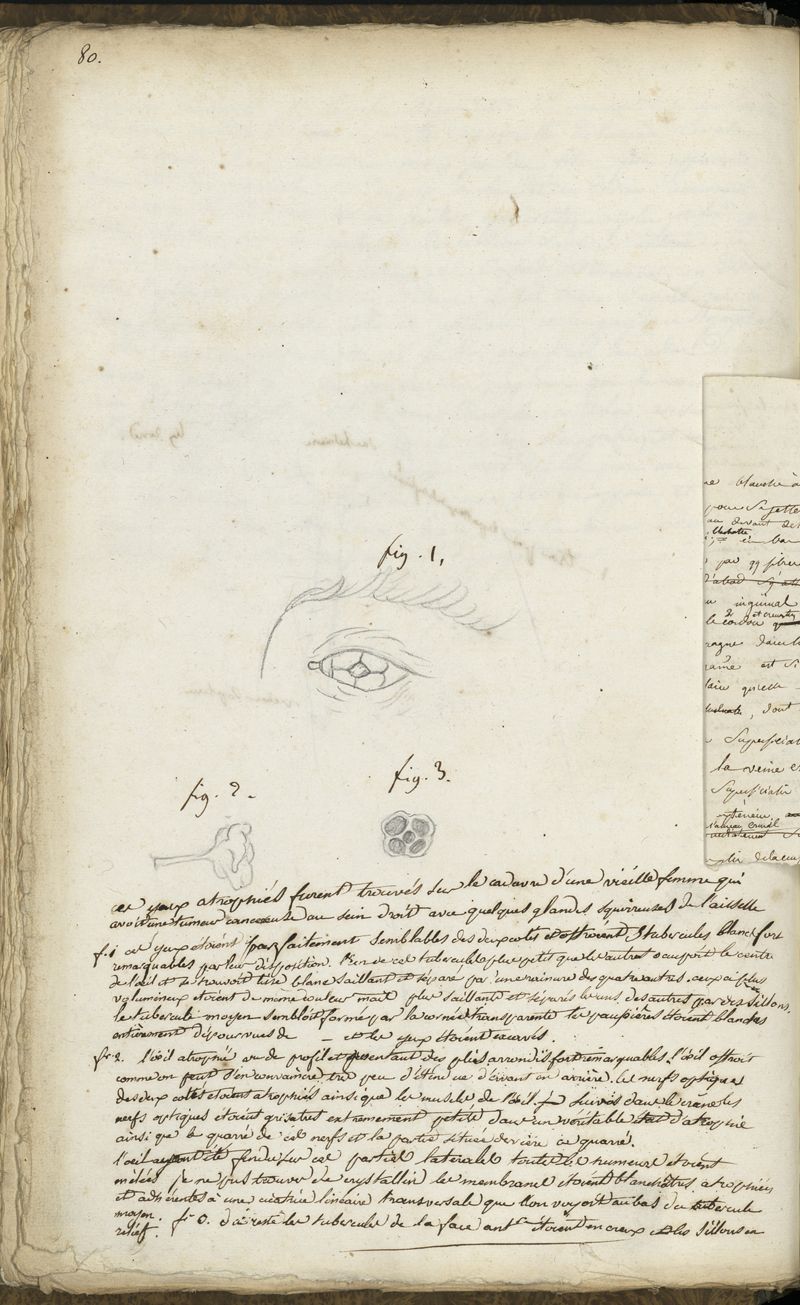 80.
fig. 1,
fig. 2.
fig. 3.
ces yeux atrophiés furent trouvés sur le cadavre d'une vieille femme qui
avoit une tumeur cancereuse au sein droit avec quelques glandes squirreuses de l'aisselle
f. 1 ces yeux etoient parfaitement semblables des deux cotés et offroient 5 tubercules blancs fort
remarquables par leur disposition. l'un de ces tubercules plus petit que les autres occupoit le centre
de l'œil et se trouvoit lisse blanc saillant et séparé par une rainure des quatre autres. ceux ci plus
volumineux etoient de même couleur mait plus saillants et séparés les uns des autres par des sillons.
le tubercule moyen sembloit formé par la cornée transparente les paupières étoient blanches
entièrement dépourvues de — et les yeux étoient excavés.
f. 2. l'œil atrophié vu de profil et presentant des plis arrondis fort remarquables. l'œil offroit
comme on peut s'en convaincre très peu d'étendue d'avant en arrière. les nerfs optiques
des deux cotés etoient atrophiés ainsi que les muscles de l'œil. suivis dans le crâne les
nerfs optiques etoient grisatres extremement petits dans un véritable etat d'atrophie
ainsi que le quarré de ces nerfs et la partie située derrière ce quarré.
l'œil ayant été fendu sur ces parties laterales toutes les humeurs etoient
mêlées je ne pus trouver de crystallin les membranes etoient blanchatres atrophiées
et adhérentes à une cicatrice linéaire transversale que l'on voyoit au bas du tubercule
moyen. f. 3. du reste les tubercules de la face ant. etoient en creux et les sillons en
relief.
blanche à
au devant des
en bas
par qq fibres
inguinal
le cordon
est si
qu'elle
, dont
Superficiel
la veine
anneau crural